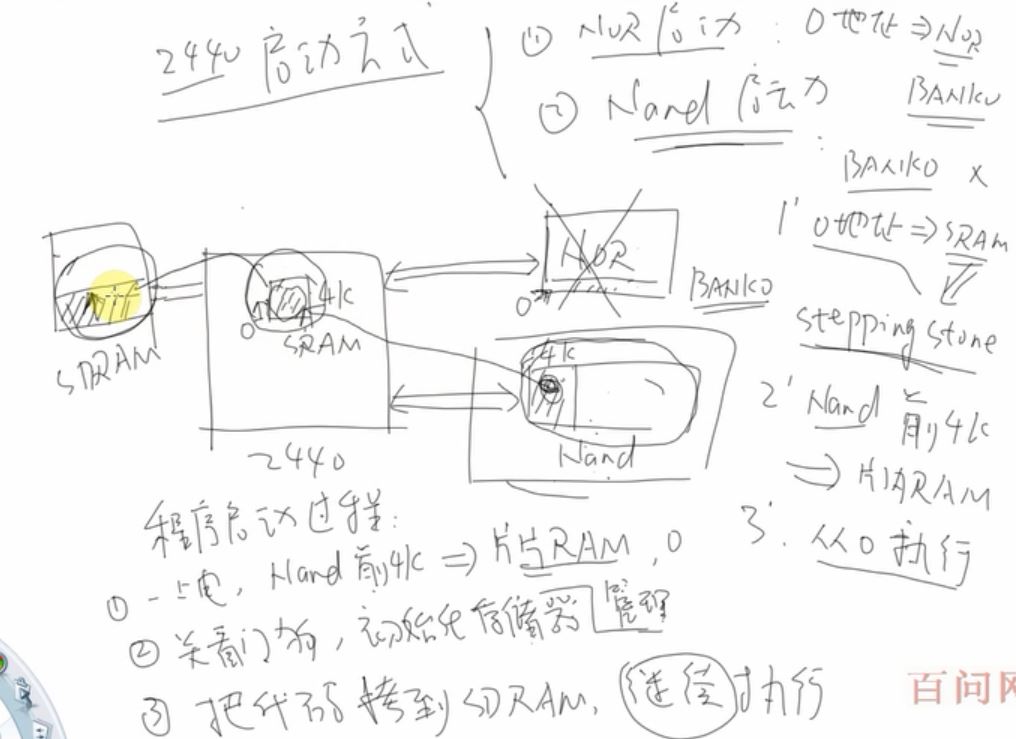 2440 启动方式
① NOR启动: 0地址⇒NOR
BANK0
② Nand 启动:
BANK0 x
1' 0地址⇒SRAM
stepping stone
2' Nand 前4K
⇒片内RAM
3'. 从0执行
NOR
0
BANK0
4K
0
SRAM
SDRAM
2440
4K
Nand
程序启动过程:
① 一上电, Nand前4K⇒片内RAM, 0
② 关看门狗, 初始化存储器管理
③ 把代码拷到SDRAM, 继续执行
百问网